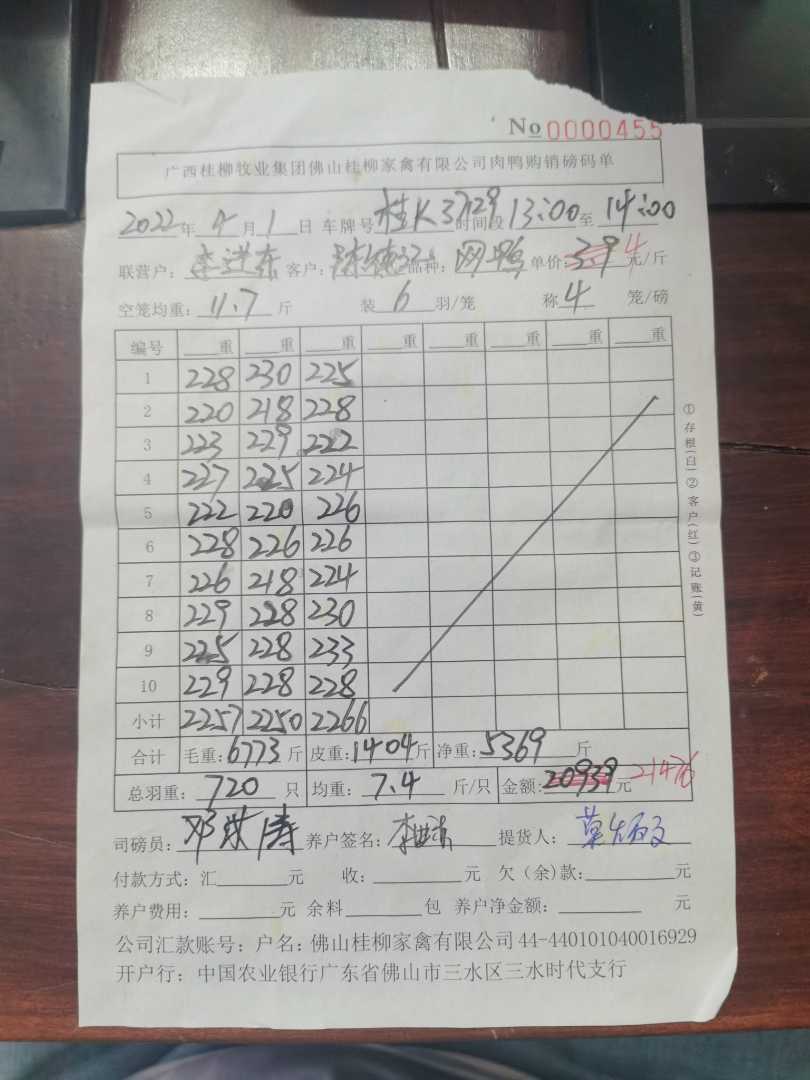 No 0000455
广西桂柳牧业集团佛山桂柳家禽有限公司肉鸭购销磅码单
2022年4月1日 车牌号桂K3729时间段13:00至14:00
联营户:李洪东 客户: 品种:网鸭 单价:3.9 4元/斤
空笼均重:11.7斤 装6羽/笼 称4笼/磅
编号 重 重 重 重 重 重 重 重
1 228 230 225
2 220 218 228
3 223 229 222
4 227 225 224
5 222 220 226
6 228 226 226
7 226 218 224
8 229 228 230
9 225 228 233
10 229 228 228
小计 2257 2250 2266
合计 毛重:6773斤 皮重:1404斤 净重:5369斤
总羽重:720只 均重:7.4斤/只 金额:20939元 21476
司磅员: 养户签名: 提货人:
付款方式:汇元 收:元 欠(余)款:元
养户费用:元 余料包 养户净金额:元
公司汇款账号:户名:佛山桂柳家禽有限公司44-440101040016929
开户行:中国农业银行广东省佛山市三水区三水时代支行
①存根(白)②客户(红)③记账(黄)